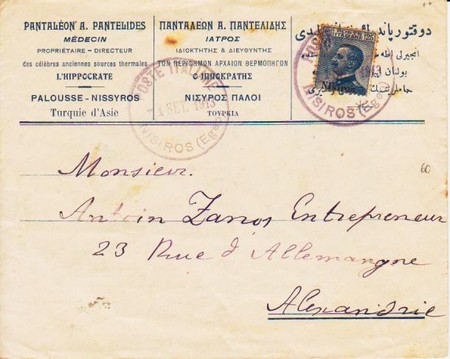 PANTALÉON A. PANTELIDES
MÉDECIN
PROPRIÉTAIRE – DIRECTEUR
des célèbres anciennes sources thermales
L'HIPPOCRATE
PALOUSSE - NISSYROS
Turquie d'Asie
ΠΑΝΤΑΛΕΩΝ Α. ΠΑΝΤΕΛΙΔΗΣ
ΙΑΤΡΟΣ
ΙΔΙΟΚΤΗΤΗΣ & ΔΙΕΥΘΥΝΤΗΣ
ΤΩΝ ΠΕΡΙΦΗΜΩΝ ΑΡΧΑΙΩΝ ΘΕΡΜΟΠΗΓΩΝ
Ο ΙΠΠΟΚΡΑΤΗΣ
ΝΙΣΥΡΟΣ ΠΑΛΟΙ
ΤΟΥΡΚΙΑ
POSTE ITALIANE
1 SET. 1913
NISIROS (Egeo)
NISIROS (Egeo)
60
Monsieur
Antoin Zanos Entrepreneur
23 Rue d'Allemangne
Alexandrie